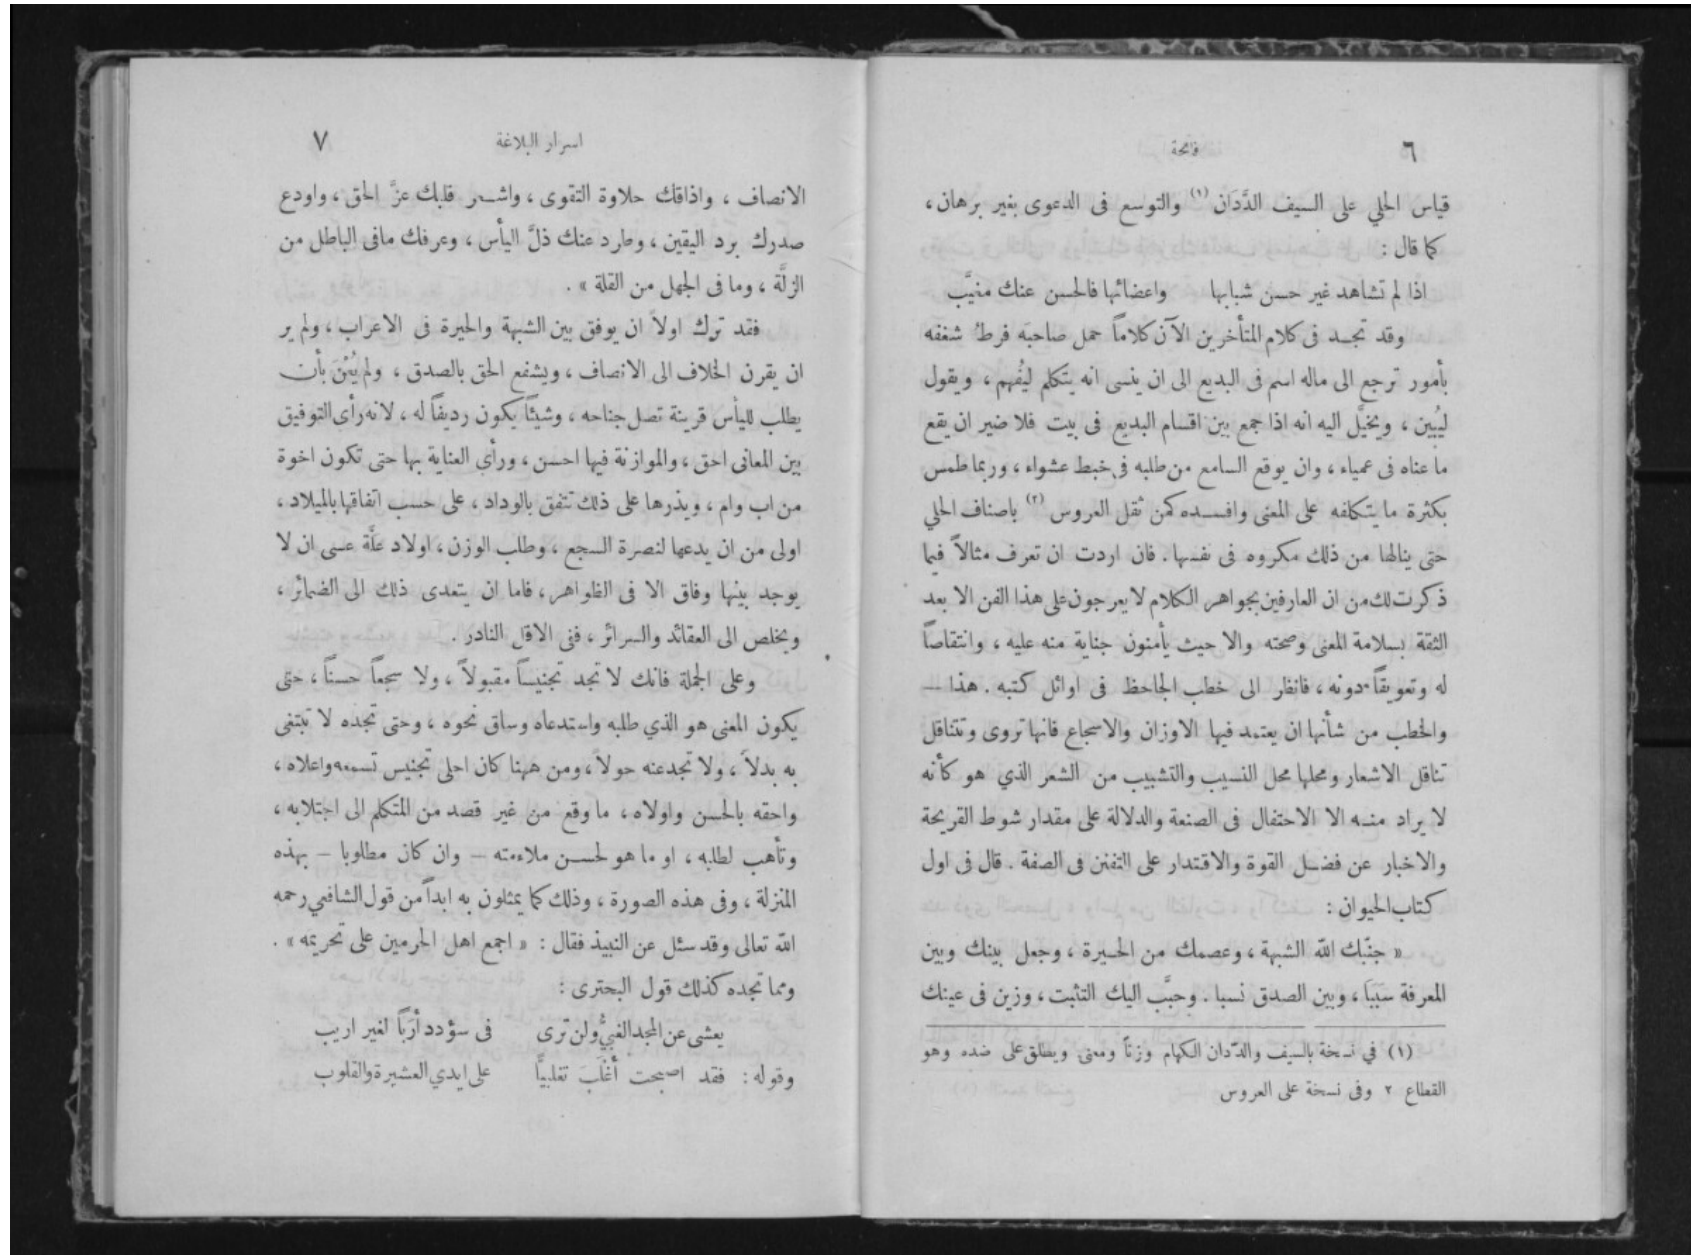 ٦
فاتحة
قياس الحلي على السيف الدَّدَان (١) والتوسع فى الدعوى بغير برهان ،
كما قال :
اذا لم تشاهد غير حسن شبابها واعضائها فالحسن عنك مغيَّب
وقد تجد فى كلام المتأخرين الآن كلاماً حمل صاحبَه فرطُ شغفه
بأمور ترجع الى ماله اسم فى البديع الى ان ينسى انه يتكلم ليُفهم ، ويقول
ليُبين ، ويخيَّل اليه انه اذا جمع بين اقسام البديع فى بيت فلا ضير ان يقع
ما عناه فى عمياء ، وان يوقع السامع من طلبه فى خبط عشواء ، وربما طمس
بكثرة ما يتكلفه على المعنى وافسده كمن ثقل العروس (٢) باصناف الحلي
حتى ينالها من ذلك مكروه فى نفسها . فان اردت ان تعرف مثالاً فيما
ذكرت لك من ان العارفين بجواهر الكلام لا يعرجون على هذا الفن الا بعد
الثقة بسلامة المعنى وصحته والا حيث يأمنون جناية منه عليه ، وانتقاصاً
له وتعويقاً دونه ، فانظر الى خطب الجاحظ فى اوائل كتبه . هذا —
والخطب من شأنها ان يعتمد فيها الاوزان والاسجاع فانها تروى وتتناقل
تناقل الاشعار ومحلها محل النسيب والتشبيب من الشعر الذي هو كأنه
لا يراد منه الا الاحتفال فى الصنعة والدلالة على مقدار شوط القريحة
والاخبار عن فضل القوة والاقتدار على التفنن فى الصفة . قال فى اول
كتاب الحيوان :
« جنّبك الله الشبهة ، وعصمك من الحيرة ، وجعل بينك وبين
المعرفة سَبَبَا ، وبين الصدق نسبا . وحبَّب اليك التثبت ، وزين فى عينك
(١) في نسخة بالسيف والدّدان الكهام وزناً ومعنى ويطلق على ضده وهو
القطاع ٢ وفى نسخة على العروس
اسرار البلاغة
٧
الانصاف ، واذاقك حلاوة التقوى ، واشعر قلبك عزَّ الحق ، واودع
صدرك برد اليقين ، وطرد عنك ذلَّ اليأس ، وعرفك مافى الباطل من
الزلَّة ، وما فى الجهل من القلة » .
فقد ترك اولاً ان يوفق بين الشبهة والحيرة فى الاعراب ، ولم ير
ان يقرن الخلاف الى الانصاف ، ويشفع الحق بالصدق ، ولم يُعْنَ بأن
يطلب لليأس قرينة تصل جناحه ، وشيئاً يكون رديفاً له ، لانه رأى التوفيق
بين المعانى احق ، والموازنة فيها احسن ، ورأى العناية بها حتى تكون اخوة
من اب وام ، ويذرها على ذلك تتفق بالوداد ، على حسب اتفاقها بالميلاد ،
اولى من ان يدعها لنصرة السجع ، وطلب الوزن ، اولاد علَّة عسى ان لا
يوجد بينها وفاق الا فى الظواهر ، فاما ان يتعدى ذلك الى الضمائر ،
ويخلص الى العقائد والسرائر ، ففى الاقل النادر .
وعلى الجملة فانك لا تجد تجنيساً مقبولاً ، ولا سجعاً حسنًا ، حتى
يكون المعنى هو الذي طلبه واستدعاه وساق نحوه ، وحتى تجده لا تبتغى
به بدلاً ، ولا تجدعنه حولاً ، ومن ههنا كان احلى تجنيس تسمعه واعلاه ،
واحقه بالحسن واولاه ، ما وقع من غير قصد من المتكلم الى اجتلابه ،
وتأهب لطلبه ، او ما هو لحسن ملاءمته — وان كان مطلوبا — بهذه
المنزلة ، وفى هذه الصورة ، وذلك كما يمثلون به ابداً من قول الشافعي رحمه
الله تعالى وقد سئل عن النبيذ فقال : « اجمع اهل الحرمين على تحريمه » .
ومما تجده كذلك قول البحترى :
يعشى عن المجد الغبيُّ ولن ترى فى سؤدد أرَبًا لغير اريب
وقوله : فقد اصبحت أغْلَبَ تغلبياًّ على ايدي العشيرة والقلوب